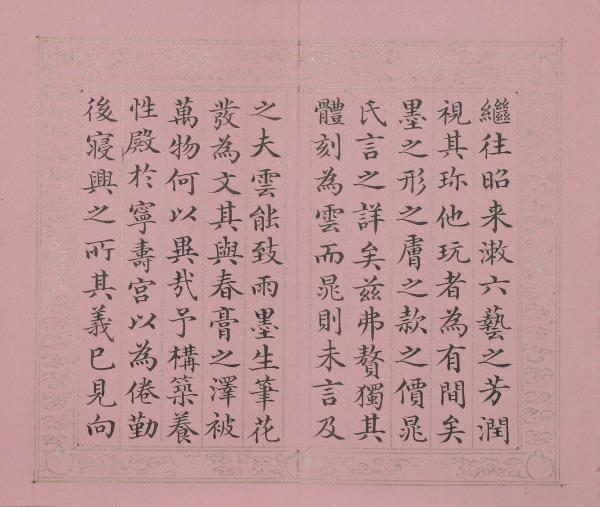 繼往昭来漱六藝之芳潤
視其珎他玩者為有間矣
墨之形之膚之款之價晁
氏言之詳矣兹弗贅獨其
體刻為雲而晁則未言及
之夫雲能致雨墨生筆花
發為文其與春膏之澤被
萬物何以異哉予構築養
性殿於寧壽宮以為倦勤
後寢興之所其義已見向